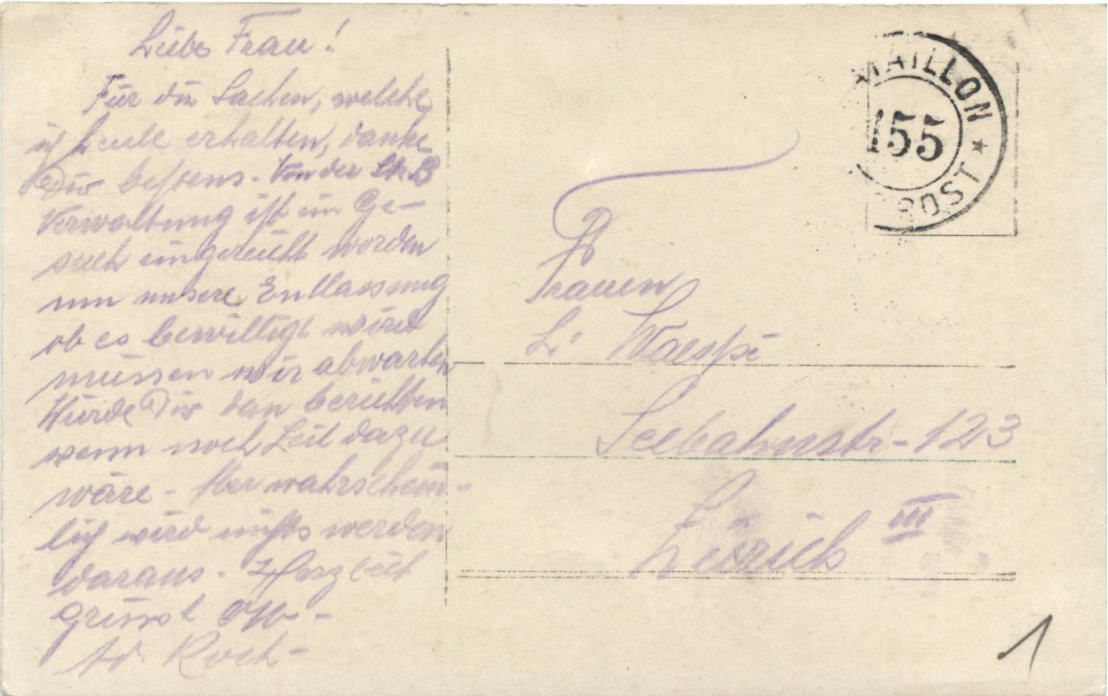 Liebe Frau!
Für die Sachen, welche
ich heute erhalten, danke
Dir bestens. Von der St. B
Verwaltung ist ein Ge-
such eingereicht worden
um unsere Entlassung
ob es bewilligt wird
müssen wir abwarten
Würde Dir dan berichten
wenn noch Zeit dazu
wäre - Aber wahrschein-
lich wird nichts werden
daraus - Herzlich
grüsst
Koch -
MAILLON
155
POST
Frauen
Waespi
Seebahnstr - 123
Zürich III
1